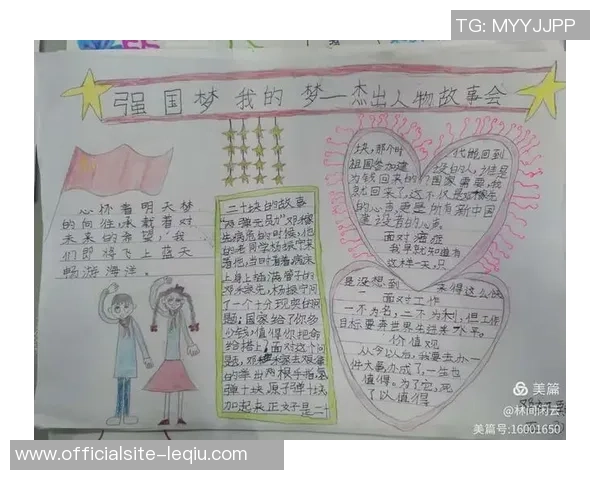 TG: MYYJJPP
强国梦 我的 梦—杰出人物故事会
心怀着明天梦
的向往,承载着对
未来的希望,我
们即将飞上蓝天
畅游海洋。
二十块的故事
"两弹元勋"邓稼
先病危的时候,他
的老同学杨振宁来
看他,当时看着病床
上身上插满管子的
邓稼先,杨振宁问
了一个十分现实的问
题:国家给了你多
少钱,值得你把命
给搭上,面对这个问
题,邓稼先艰难
的举出两根手指氢
弹十块,原子弹十块
加起来正好是二十
块,那个时代能回到
祖国参加建设的人,谁是
为钱回来的?国家需要,我
就回来了,这不仅是邓稼先
的心声,更是所有新中国
建设者的心声
面对癌症
我早就知道有
这样一天,只
是没想到来得这么快
面对工作
一不为名,二不为利,但工作
目标要奔世界先进水平。
价值观
从今以后,我要去办一
件大事,办成了,一生也
值得。为了它,死
了以值得
美篇
@林间闲云
美篇号:16001650
www.officialsite-leqiu.com